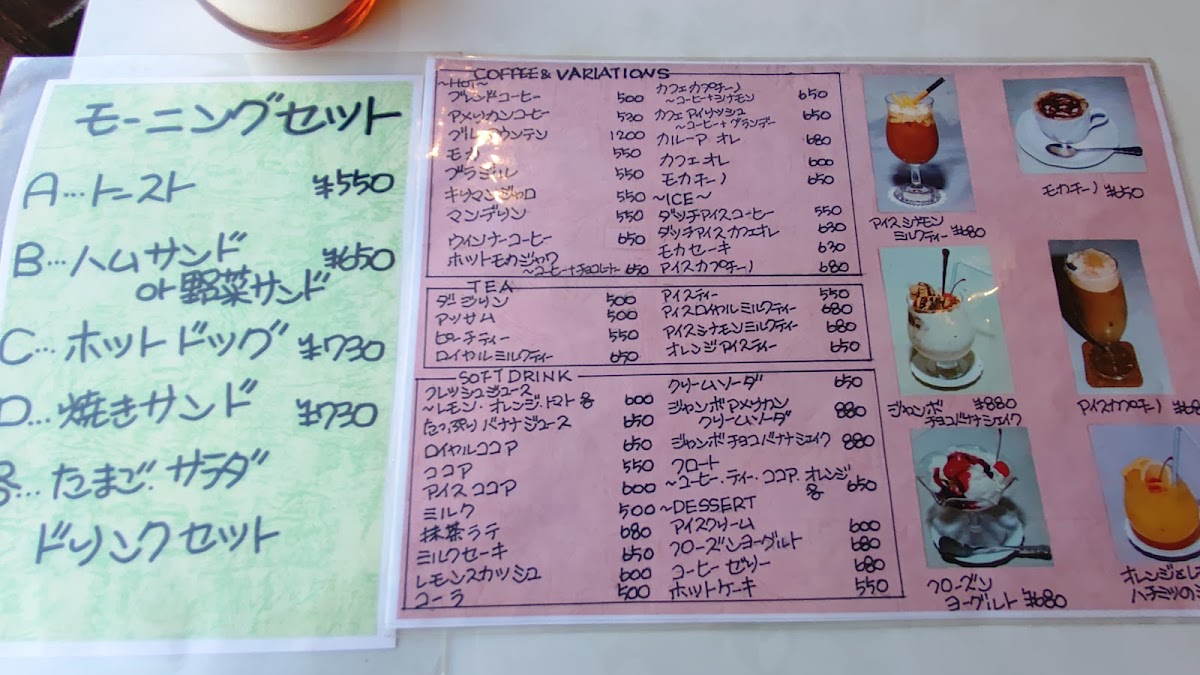 モーニングセット
A…トースト ¥550
B…ハムサンド ¥650
or野菜サンド
C…ホットドッグ ¥730
D…焼きサンド ¥730
…たまご.サラダ
ドリンクセット
COFFEE & VARIATIONS
~Hot~
ブレンドコーヒー 500
アメリカンコーヒー 520
ブルーマウンテン 1200
モカ 550
ブラジル 550
キリマンジャロ 550
マンデリン 550
ウィンナーコーヒー 650
ホットモカジャワ
~コーヒー+チョコレート 650
カフェカプチーノ 650
~コーヒー+シナモン
カフェアイリッシュ 650
~コーヒー+ブランデー
カルーア オレ 680
カフェオレ 600
モカチーノ 650
~ICE~
ダッチアイスコーヒー 550
ダッチアイスカフェオレ 630
モカセーキ 630
アイスカプチーノ 680
TEA
ダージリン 500
アッサム 500
ピーチティー 550
ロイヤルミルクティー 650
アイスティー 550
アイスロイヤルミルクティー 680
アイスシナモンミルクティー 680
オレンジアイスティー 650
SOFT DRINK
フレッシュジュース
~レモン.オレンジ.トマト各 600
たっぷりバナナジュース 650
ロイヤルココア 650
ココア 550
アイスココア 600
ミルク 500
抹茶ラテ 680
ミルクセーキ 650
レモンスカッシュ 600
コーラ 500
クリームソーダ 650
ジャンボアメリカン
クリームソーダ 880
ジャンボチョコバナナシェイク 880
フロート
~コーヒー.ティー.ココア.オレンジ
各 650
~DESSERT
アイスクリーム 600
フローズンヨーグルト 680
コーヒーゼリー 680
ホットケーキ 550
アイスシナモン
ミルクティー ¥680
モカチーノ ¥650
ジャンボ ¥880
チョコバナナシェイク
アイスカプチーノ
フローズン
ヨーグルト ¥680
オレンジ&レ
ハチミツの